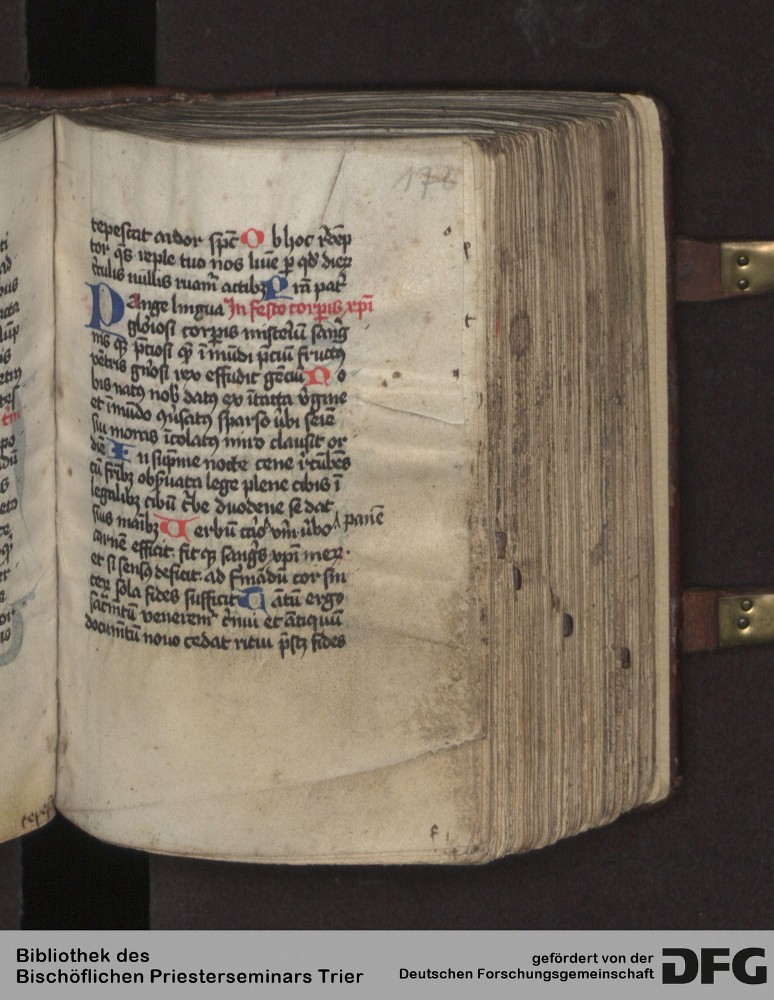 176
tepescat ardor spc O b hoc rdēp
tor qs reple tuo nos lūīe per qd dier
culis nullis ruam actib P rā pat
P Ange lingua In festo corpis xpi
gloriosi corpis misteriū sang
nis qz pciosi qz ī mūdi pciū fructus
vētris gnosi rex effudit gēciū N o
bis natus nob datus ex ītacta vgine
et ī mūdo qusatus sparso ūbi seīe
sui moras īcolatus miro clausit or
die I n supme nocte cene rcūbēs
cū frib obsuata lege plene cibis ī
legalib cibū tbe duodene se dat
suis maib U erbū caro vm ūbo panē
carnē efficit fit qz sangs xpi mer
et si sensus deficit ad fmādū cor sin
cer sola fides sufficit T ātū ergo
sacmtū venerem cnui et ātiquū
documtū nouo cedat ritui pstz fides
tepes
Bibliothek des
Bischöflichen Priesterseminars Trier
gefördert von der
Deutschen Forschungsgemeinschaft
DFG